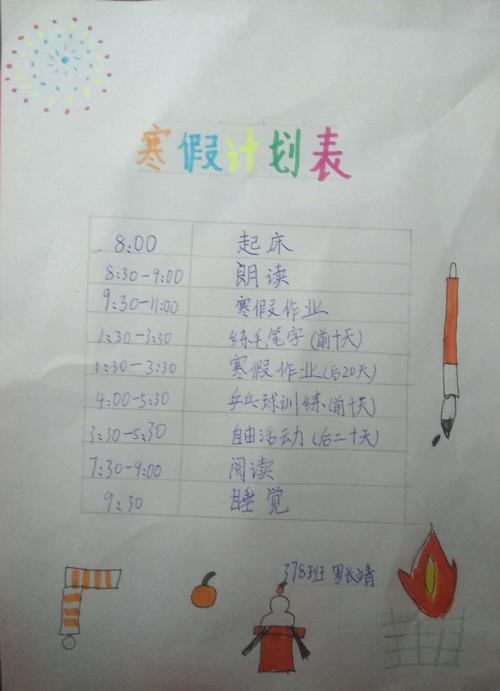 寒假计划表
8:00 起床
8:30-9:00 朗读
9:30-11:00 寒假作业
1:30-3:30 练毛笔字(前十天)
1:30-3:30 寒假作业(后20天)
4:00-5:30 乒乓球训练(前十天)
3:30-5:30 自由活动(后二十天)
7:30-9:00 阅读
9:30 睡觉
378班 罗长清